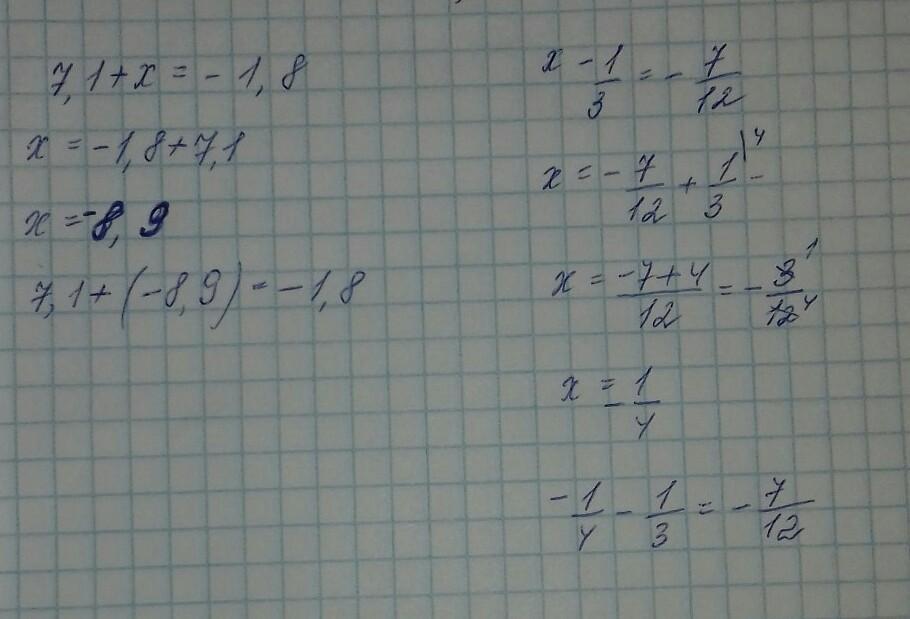 7,1+x=-1,8
x=-1,8+7,1
x=-8,9
7,1+(-8,9)=-1,8
x - 1/3 = - 7/12
x = - 7/12 + 1/3 |4 -
x = -7+4/12 = - 3/12 1 4
x = - 1/4
- 1/4 - 1/3 = - 7/12